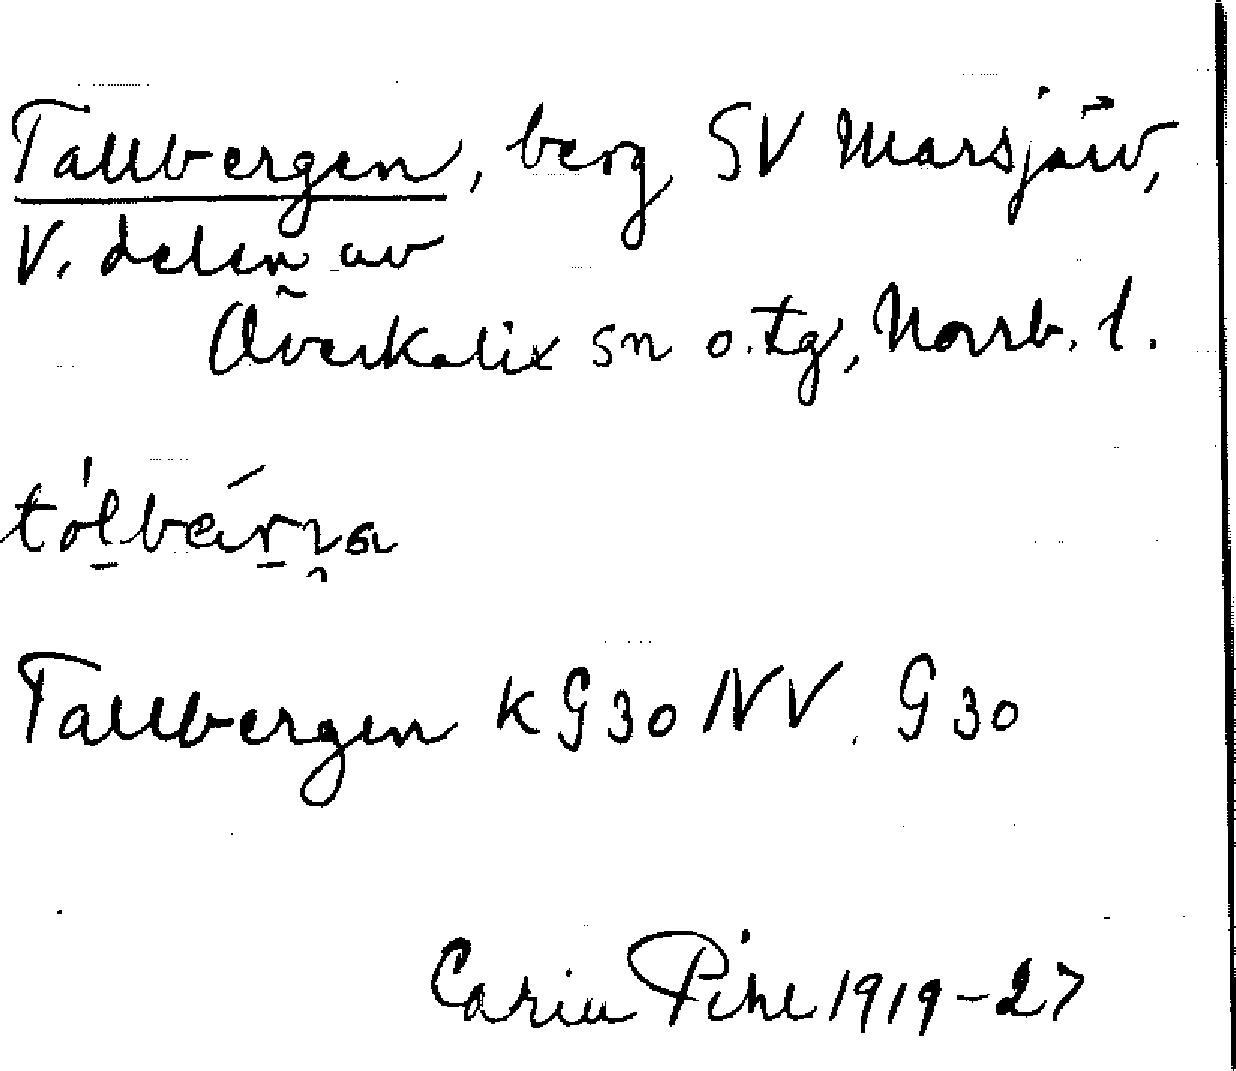 Tallbergen, berg SV Marsjärv,
V. delen av
Överkalix sn o. tg, Norrb. l.
Tallbergen KG30 NV. G30
Carin Pihl 1919-27